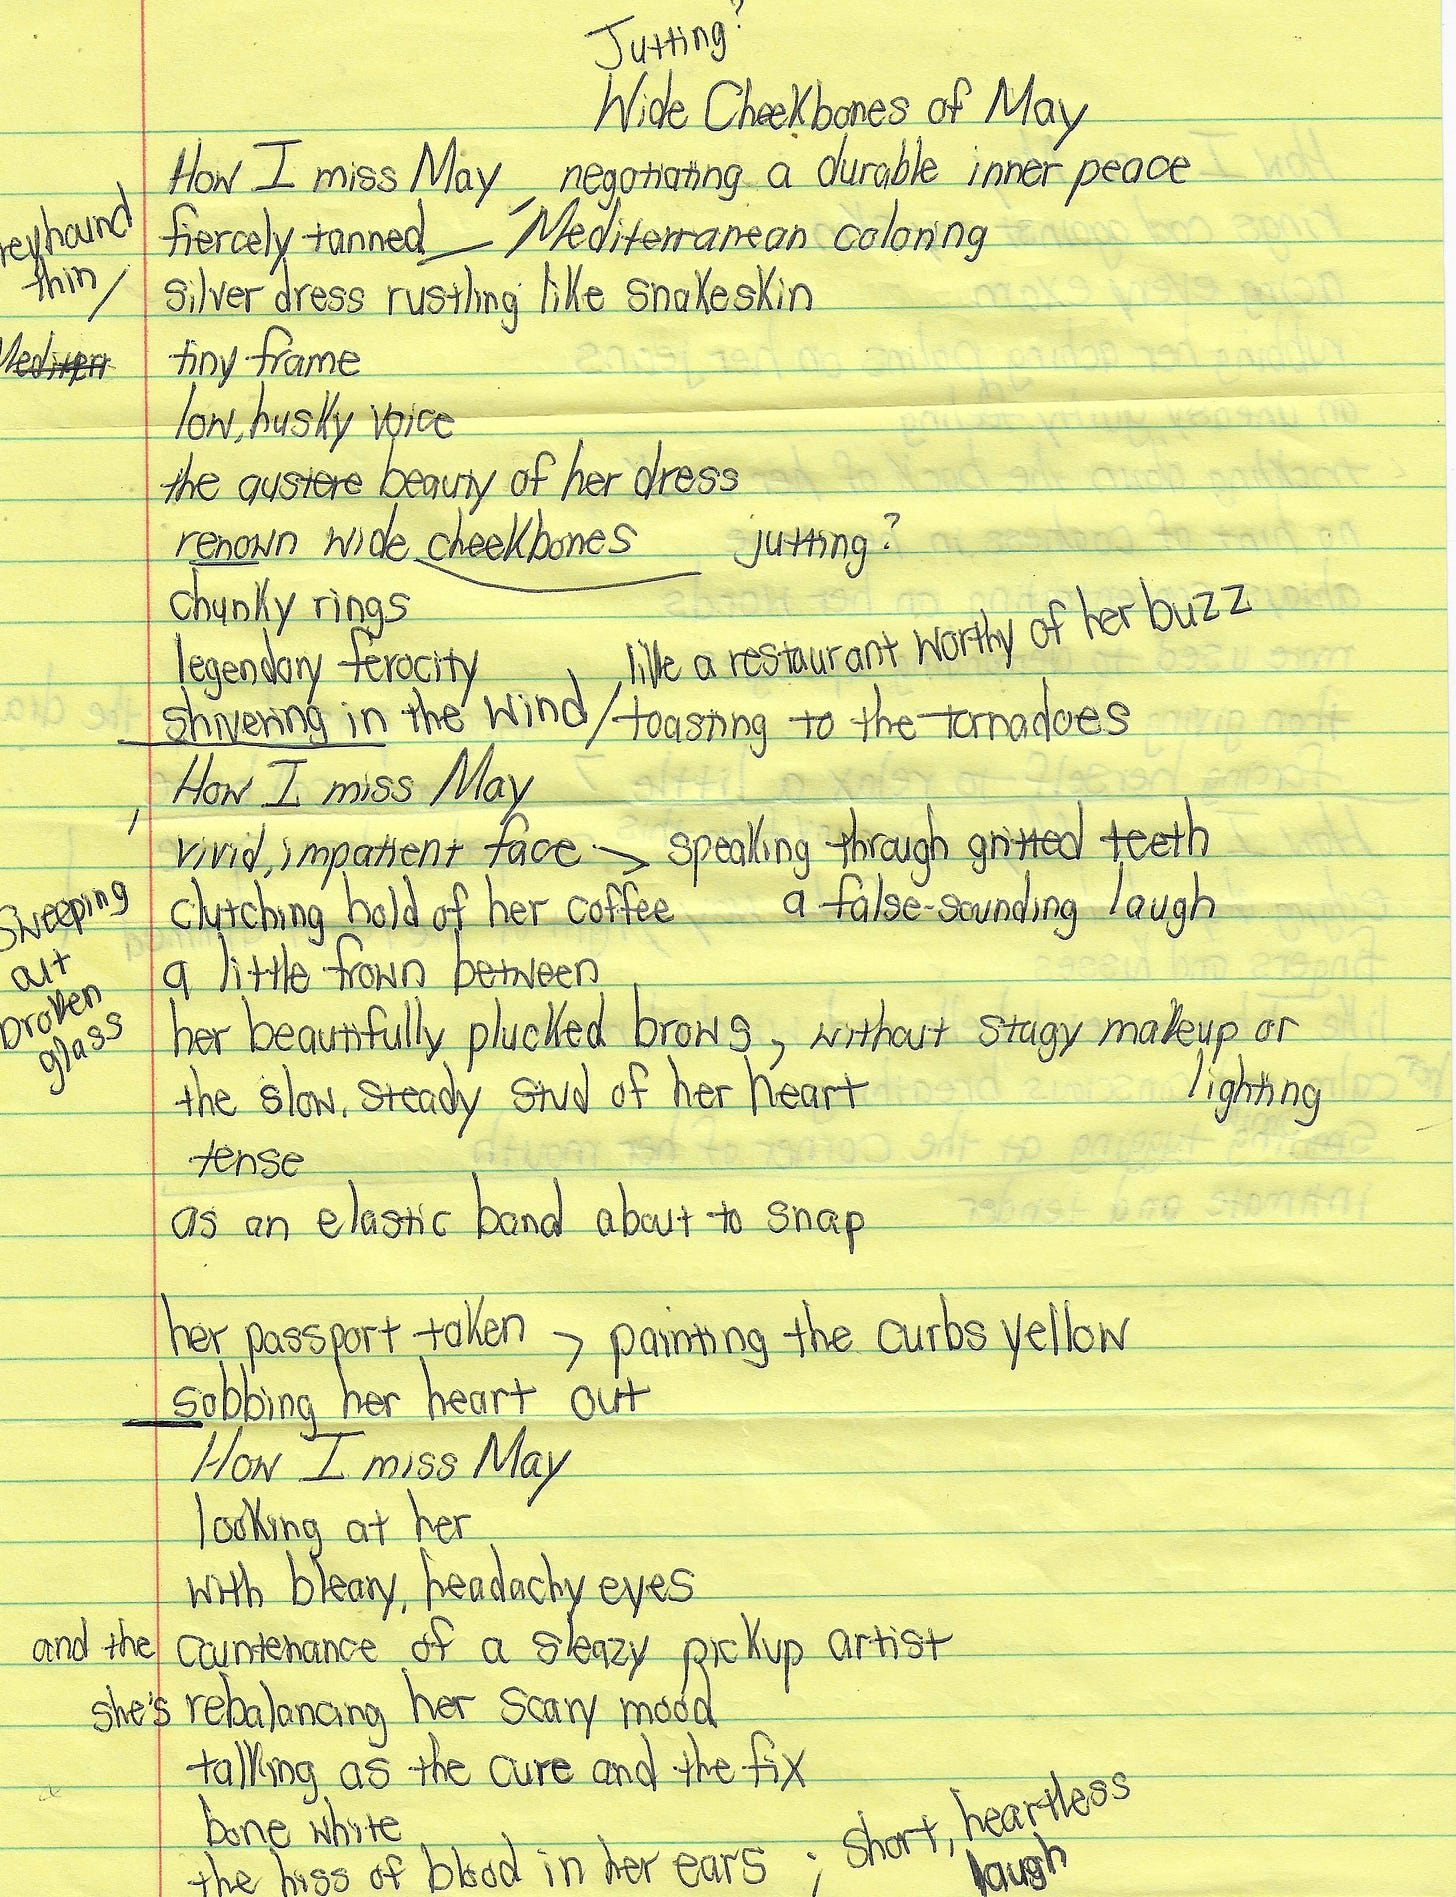 Jutting?
Wide Cheekbones of May
How I miss May, negotiating a durable inner peace
reyhound
thin /
fiercely tanned — Mediterranean coloring
silver dress rustling like snakeskin
Mediterr
tiny frame
low, husky voice
the austere beauty of her dress
renown wide cheekbones jutting?
chunky rings
legendary ferocity
like a restaurant worthy of her buzz
shivering in the wind / toasting to the tornadoes
How I miss May
vivid, impatient face speaking through gritted teeth
clutching hold of her coffee a false-sounding laugh
Sweeping
out
broken
glass
a little frown between
her beautifully plucked brows, without stagy makeup or
lighting
the slow, steady of her heart
tense
as an elastic band about to snap
her passport taken > painting the curbs yellow
sobbing her heart out
How I miss May
looking at her
with bleary, headachy eyes
and the countenance of a sleazy pickup artist
she's rebalancing her scary mood
talking as the cure and the fix
bone white
the hiss of blood in her ears ; short, heartless
laugh